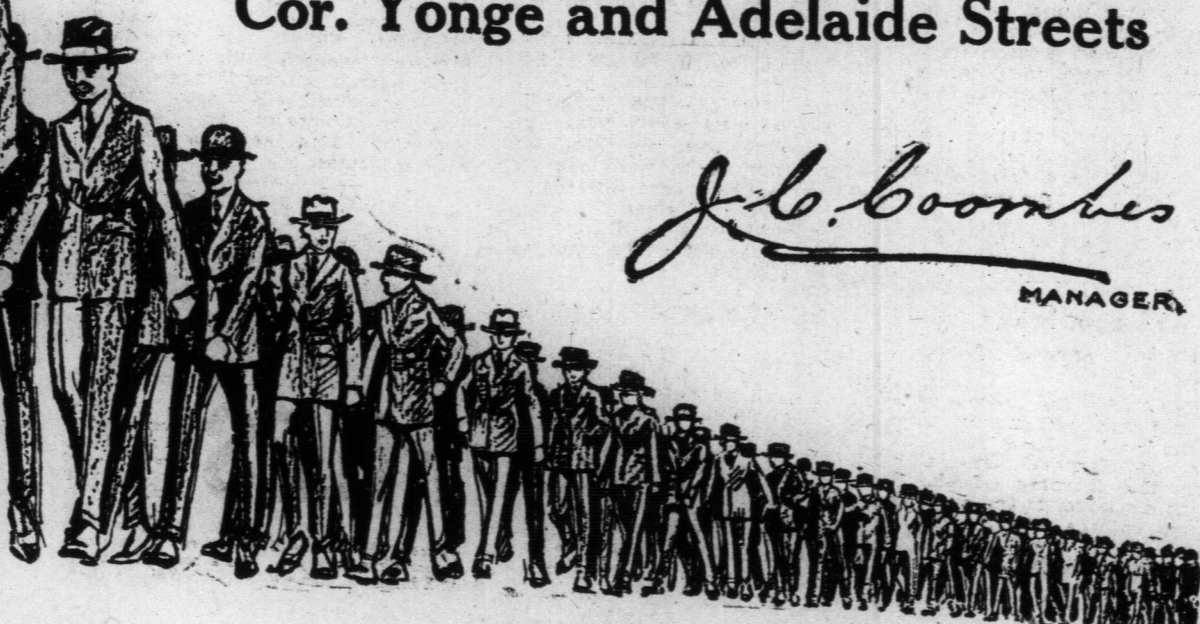 Cor. Yonge and Adelaide Streets
J. C. Coombes
MANAGER.